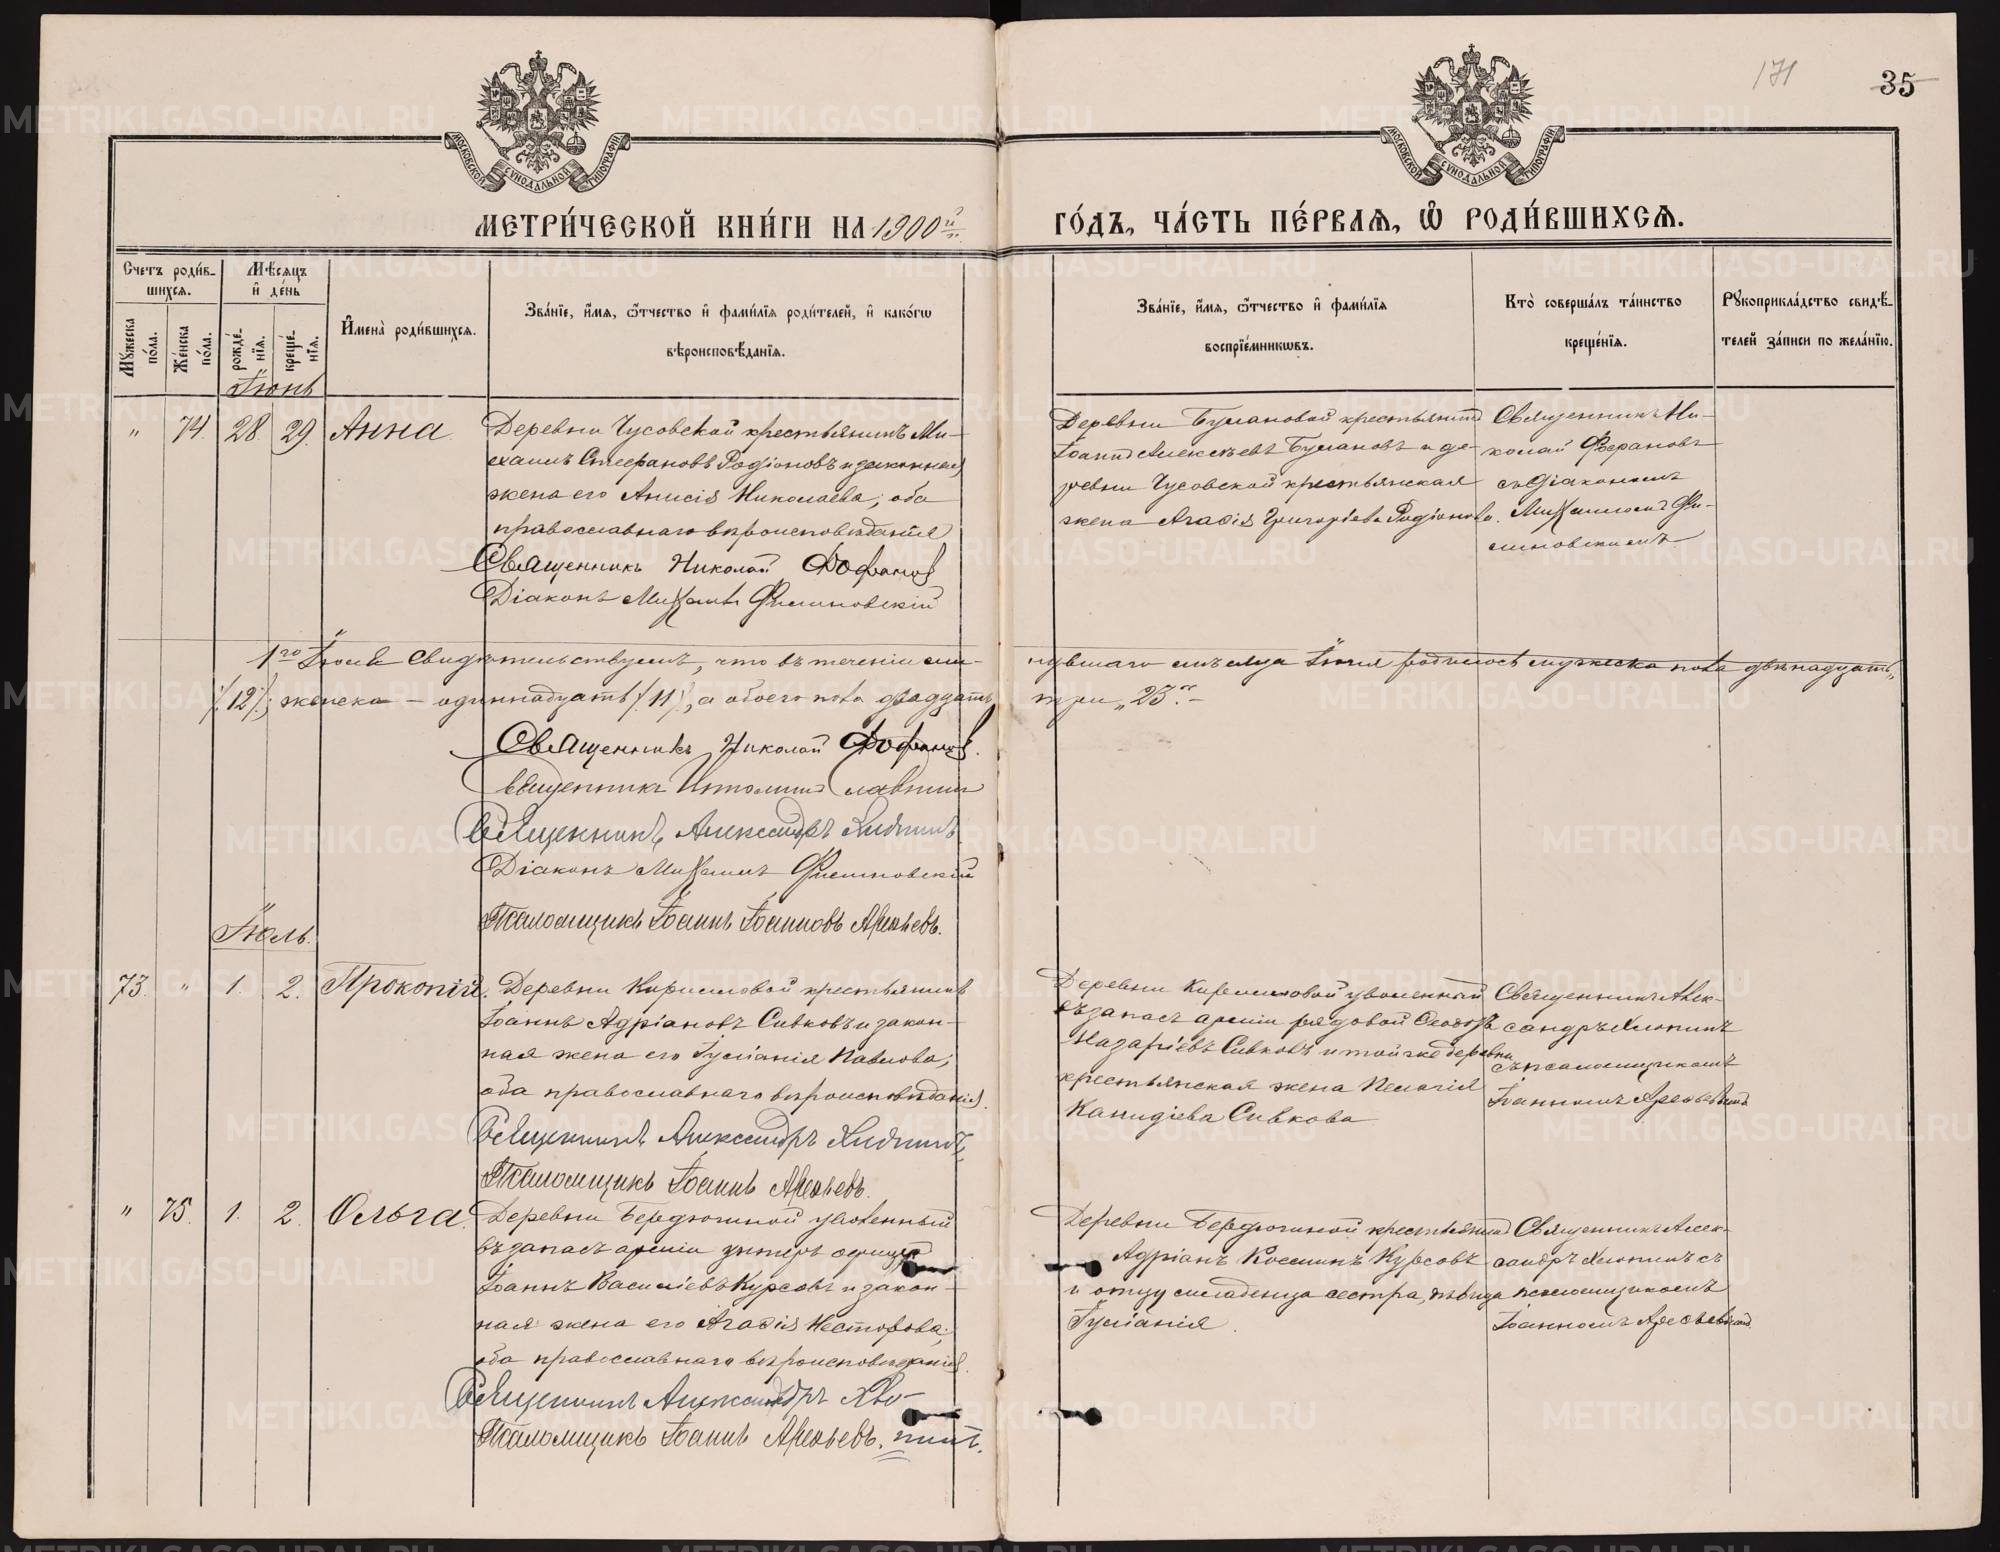 171
35
МОСКОВСКОЙ СѴНОДАЛЬНОЙ ТИПОГРАФІИ
МОСКОВСКОЙ СѴНОДАЛЬНОЙ ТИПОГРАФІИ
МЕТРИ́ЧЕСКОЙ КНИ́ГИ НА 1900й
ГО́ДЪ, ЧА́СТЬ ПЕ́РВАѦ, Ѡ҆ РОДИ́ВШИХСѦ.
Счетъ роди́вшихсѧ.
Мꙋжеска по́ла.
Же́нска по́ла.
Мѣ́сѧцъ и҆ де́нь
рожде́нїѧ.
креще́нїѧ.
И҆мена̀ роди́вшихсѧ.
Зва́нїе, и҆́мѧ, ѻ҆́тчество и҆ фами́лїѧ роди́телей, и҆ како́гѡ
вѣроисповѣ́данїѧ.
Зва́нїе, и҆́мѧ, ѻ҆́тчество и҆ фами́лїѧ
воспрїе́мникѡвъ.
Кто̀ соверша́лъ та́инство
креще́нїѧ.
Рꙋкоприкла́дство свидѣ́-
телей за́писи по жела́нїю.
Іюнь
" 74. 28. 29. Анна.
Деревни Чусовской крестьянинъ Ми-
хаилъ Стефановъ Родіоновъ и законная
жена его Анисія Николаева; оба
православнаго вѣроисповѣданія
Священникъ Николай
Діаконъ Михаилъ Филиновскій
Деревни Булановой крестьянинъ
Іоаннъ Алексѣевъ Булановъ и де-
ревни Чусовской крестьянская
жена Агаѳія Григоріева Родіонова.
Священникъ Ни-
колай
съ діакономъ
Михаиломъ Фи-
линовскимъ
1го Іюля свидѣтельствуемъ, что въ теченіи ми-
нувшаго мѣсяца Іюня родилось мужеска пола двѣнадцать
/12/; женска – одиннадцать /11/, а обоего пола двадцать
три „23".–
Священникъ Николай
Священникъ Славнин
Священникъ Александръ Хлопинъ
Діаконъ Михаилъ Филиновскій
Псаломщикъ Іоаннъ Іоанновъ Арефьевъ.
Іюль.
73. " 1. 2. Прокопій.
Деревни Кирилловой крестьянинъ
Іоаннъ Адріановъ Сивковъ и закон-
ная жена его Іуліанія Павлова;
оба православнаго вѣроисповѣданія.
Священникъ Александръ Хлопинъ,
Псаломщикъ Іоаннъ Арефьевъ.
Деревни Кирилловой уволенный
въ запасъ арміи рядовой Ѳеодоръ
Назаріевъ Сивковъ и той же деревни
крестьянская жена Пелагія
Канидіева Сивкова
Священникъ Алек-
сандръ Хлопинъ
съ псаломщикомъ
Іоанномъ Арефьевымъ
" 75. 1. 2. Ольга.
Деревни Бердюгиной уволенный
въ запасъ арміи унтеръ офицеръ
Іоаннъ Василіевъ Курсовъ и закон-
ная жена его Агаѳія Несторова;
оба православнаго вѣроисповѣданія.
Священникъ Александръ Хло-
Псаломщикъ Іоаннъ Арефьевъ. пинъ.
Деревни Бердюгиной крестьянинъ
Адріанъ Косминъ Курсовъ
и отцу младенца сестра, дѣвица
Іуліанія.
Священникъ Алек-
сандръ Хлопинъ съ
псаломщикомъ
Іоанномъ Арефьевымъ
METRIKI.GASO-URAL.RU